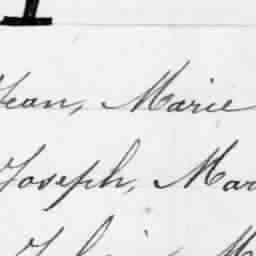 Jean, Marie
Joseph, Mar